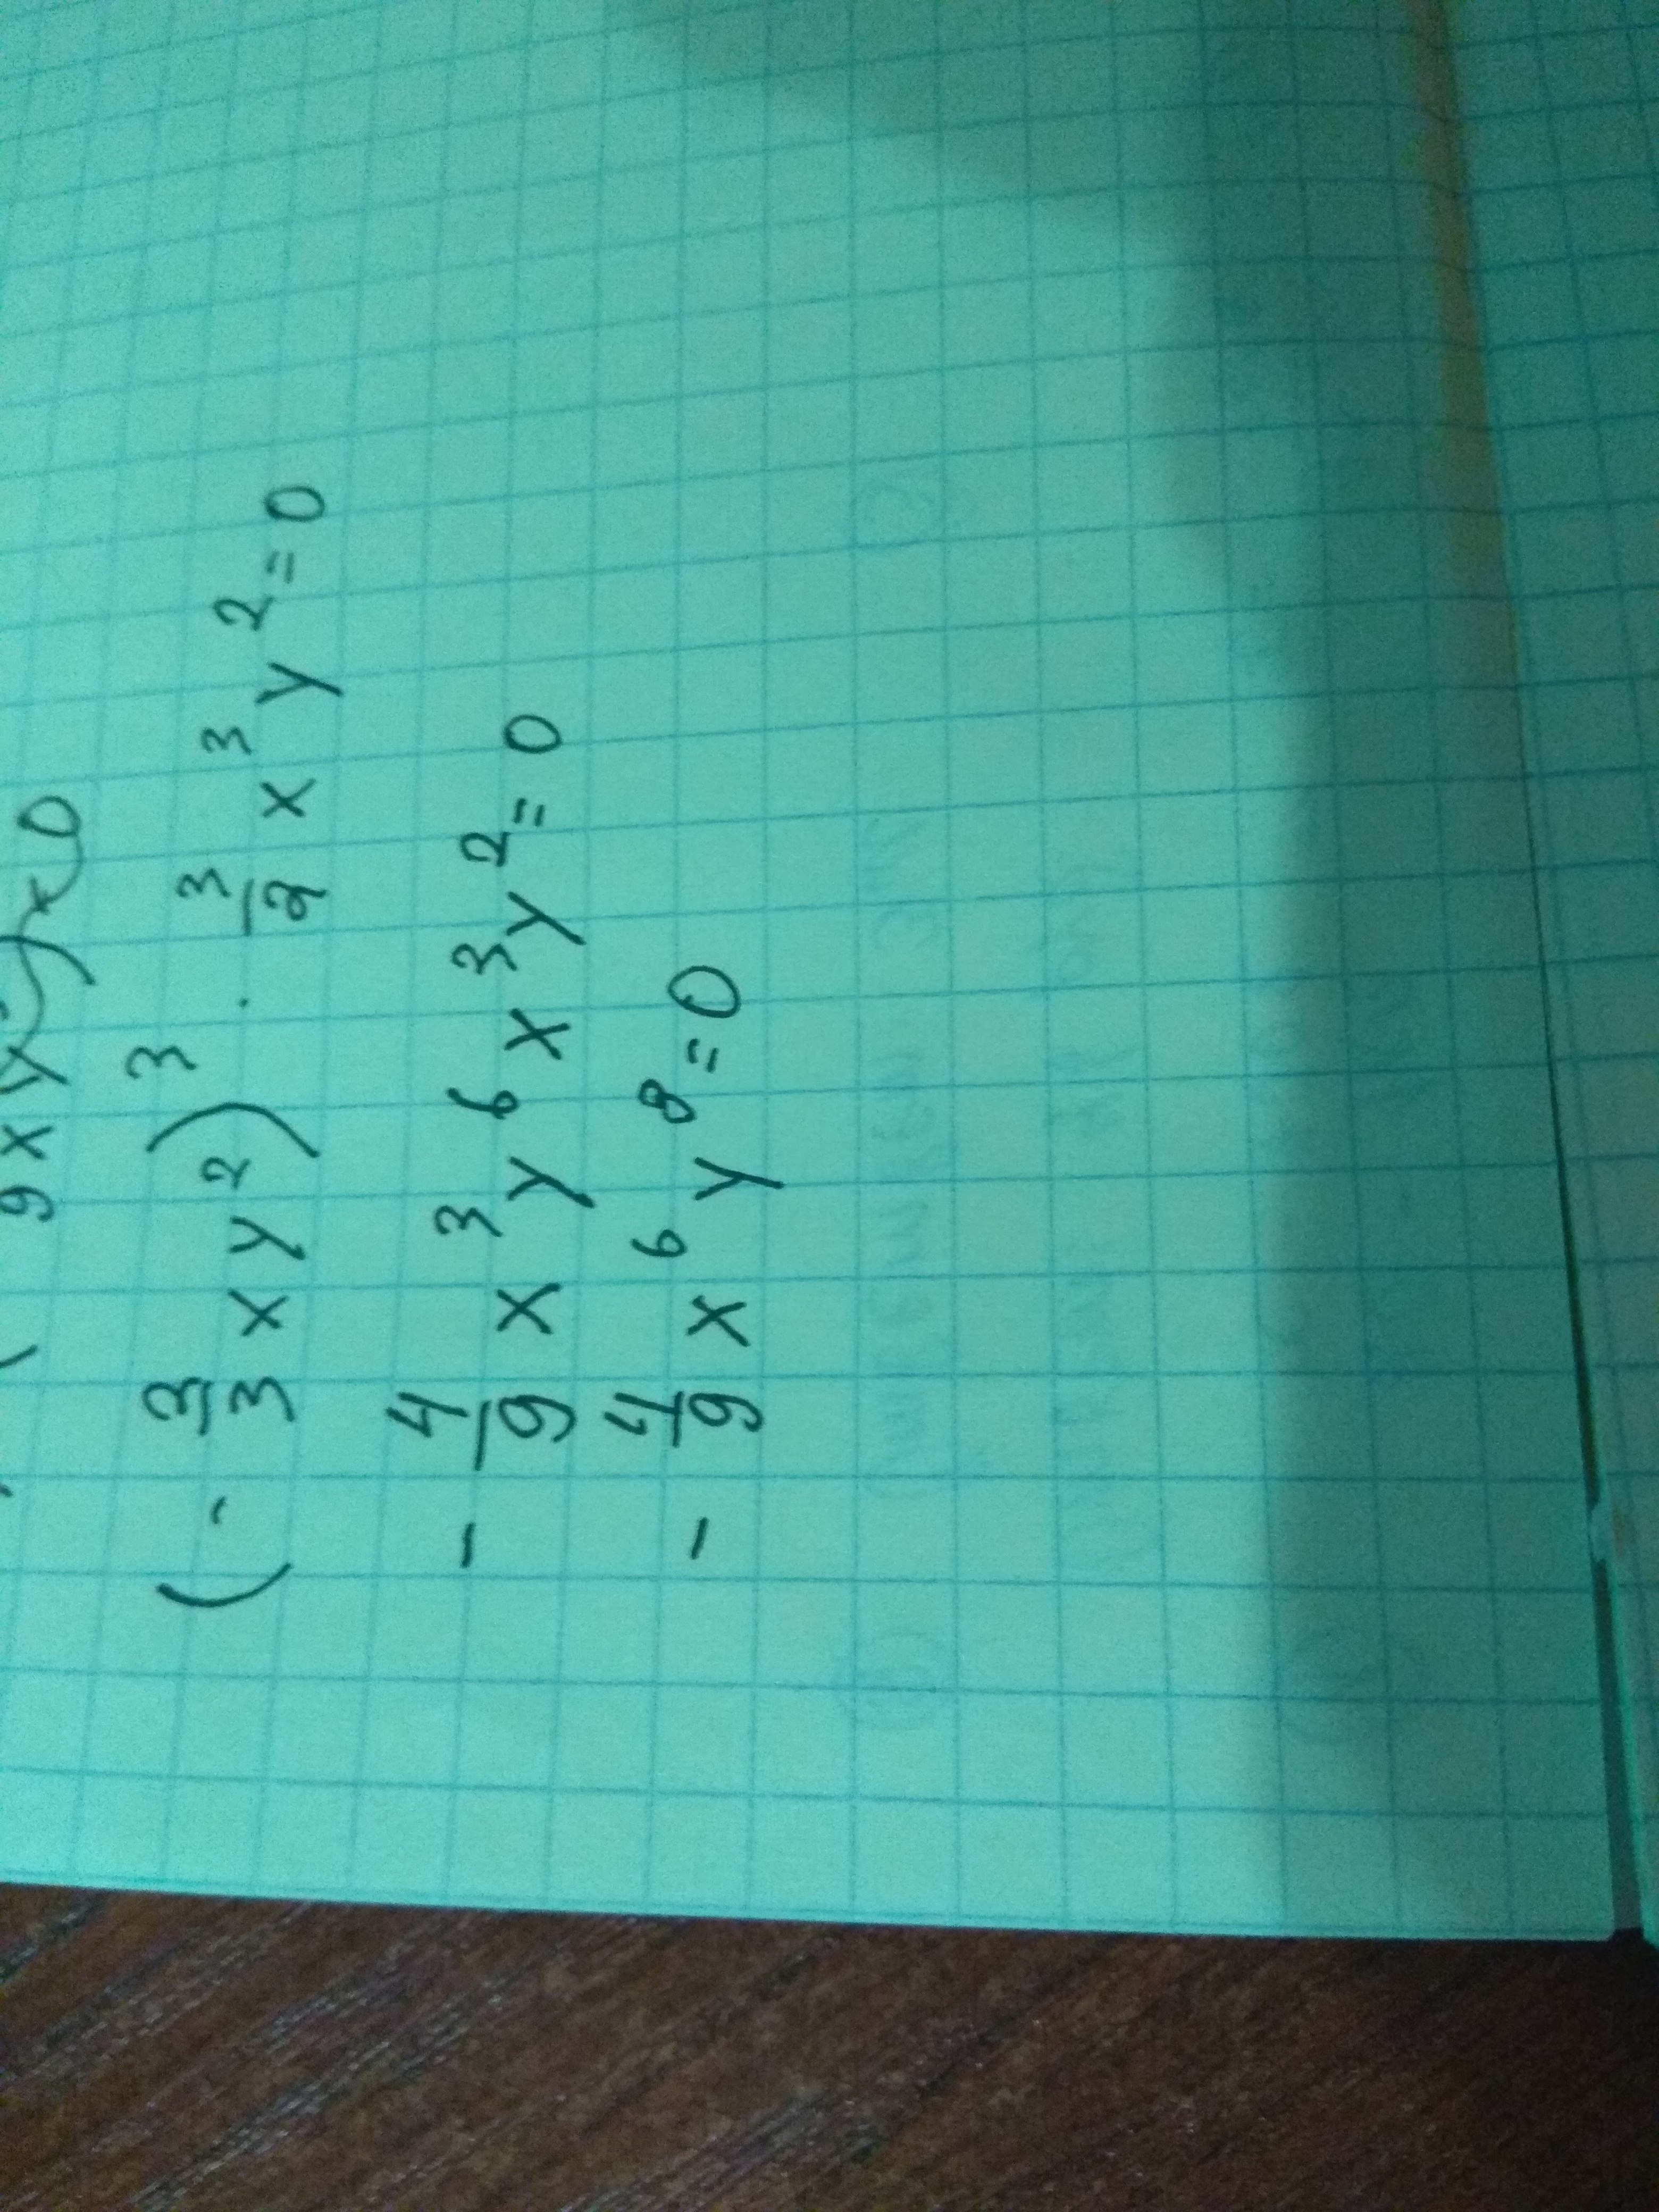 9xy
(-2/3 xy²)³ · 3/2 x³y² = 0
- 4/9 x³y⁶x³y² = 0
- 4/9 x⁶y⁸ = 0